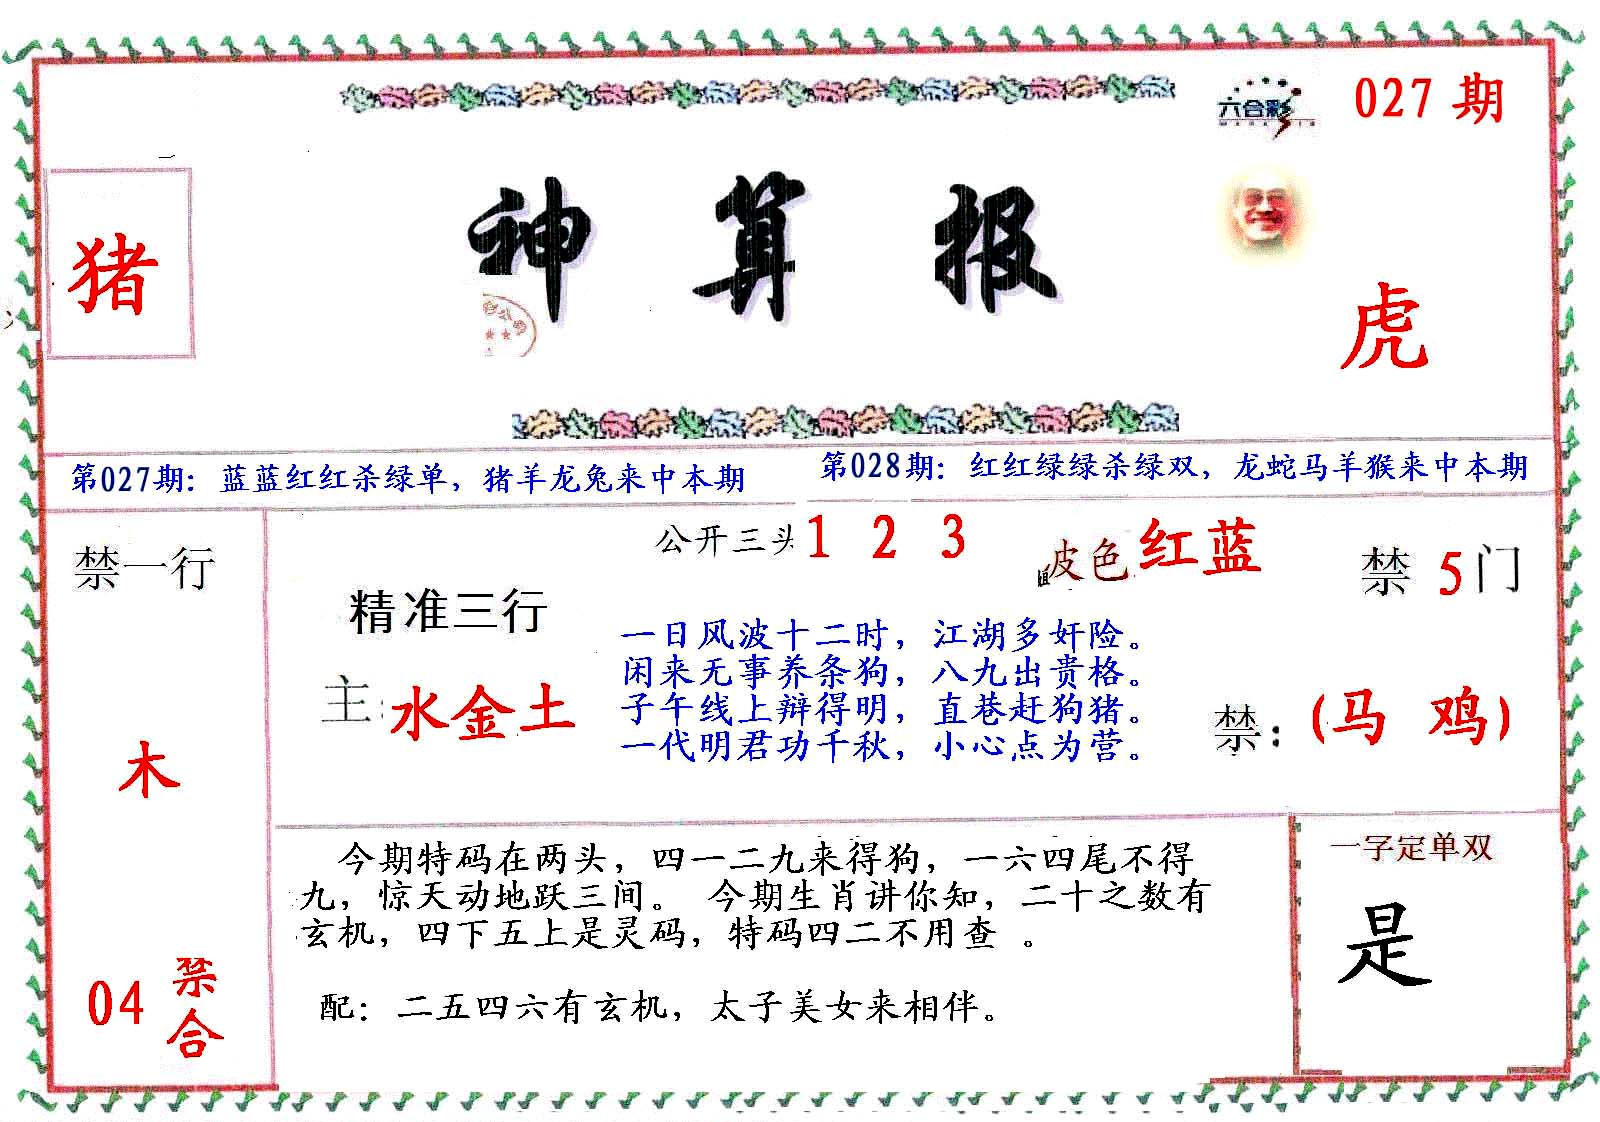 六合彩
027 期
神算报
猪
虎
第027期：蓝蓝红红杀绿单，猪羊龙兔来中本期
第028期：红红绿绿杀绿双，龙蛇马羊猴来中本期
禁一行
木
04 禁合
公开三头 1 2 3
波色 红蓝
禁 5 门
精准三行
主：水金土
一日风波十二时，江湖多奸险。
闲来无事养条狗，八九出贵格。
子午线上辩得明，直巷赶狗猪。
一代明君功千秋，小心点为营。
禁：(马 鸡)
今期特码在两头，四一二九来得狗，一六四尾不得
九，惊天动地跃三间。 今期生肖讲你知，二十之数有
玄机，四下五上是灵码，特码四二不用查 。
配：二五四六有玄机，太子美女来相伴。
一字定单双
是